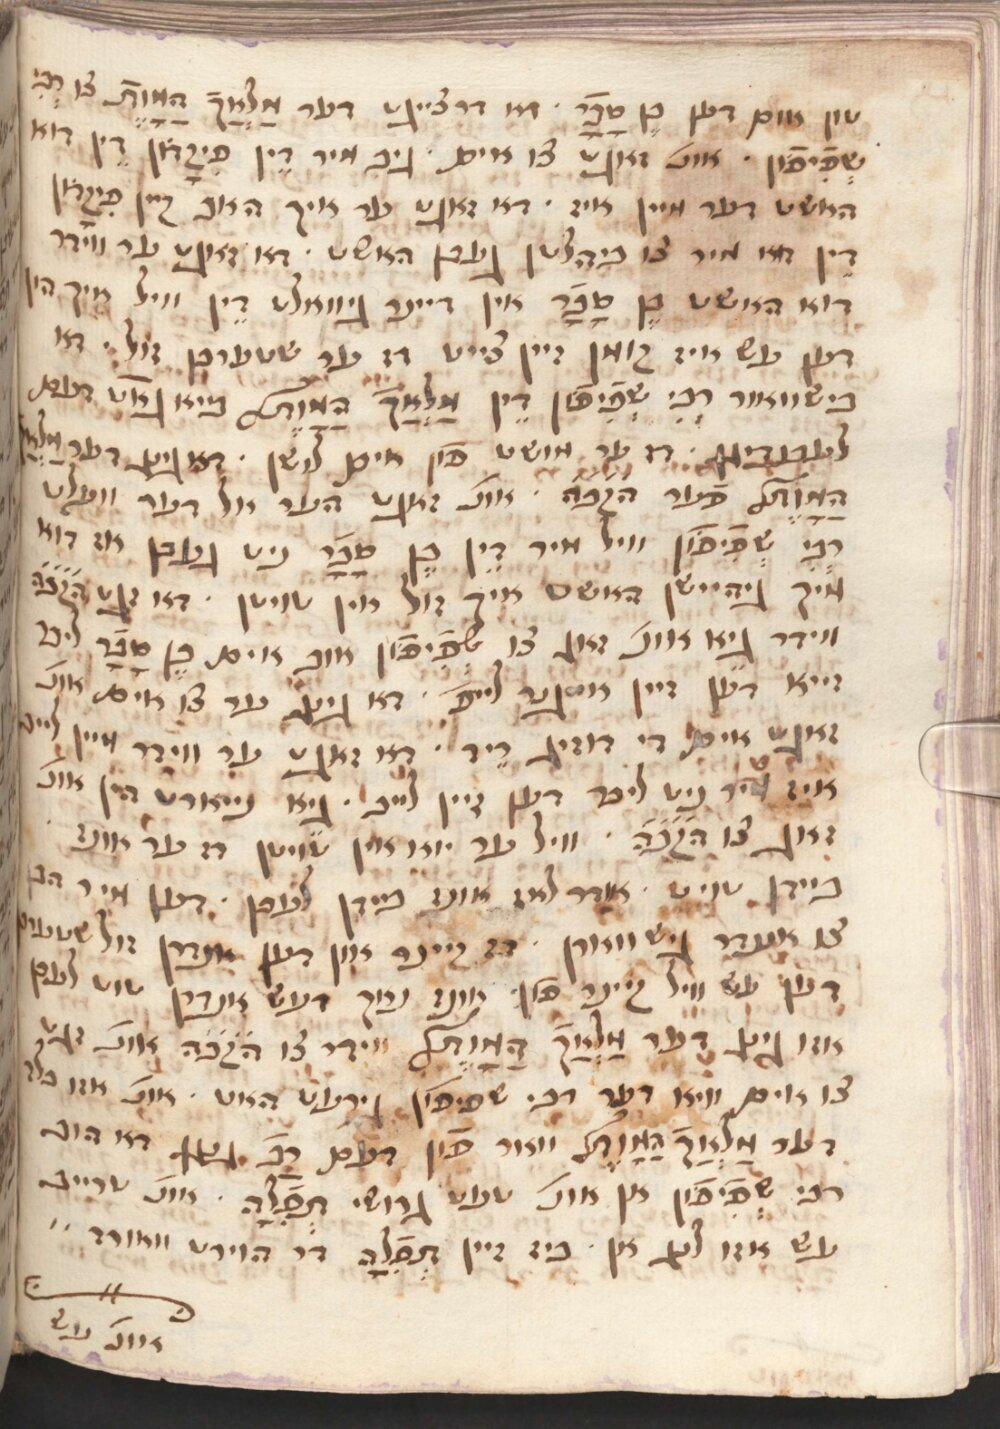 טון אום דען בֶן סָבָר . דא דרצייגט דער מַלְאַךְ הַמָוֶת צו רבי
שְפִיפוֹן . אונ' זאגט צו אים . גיב מיר דֵין פִיקָדוֹן דֵין דוא
האשט דער מיין איז . דא זאגט ער איך האב קיין פִיקָדוֹן
דֵין דוא מיר צו ביהלטן געבן האשט . דא זאגט ער ווידר
דוא האשט בֶן סָבָר אין דיינר גיוואלט דֵין וויל איך הין
דען עש איז קומן זיין צייט דז ער שטערבן זול . דא
בישוואור רבי שְפִיפוֹן דֵין מַלְאַךְ הַמָוֶת ביא גאט דעם
לעבנדיגן . דז ער מושט פון אים לושן . דא גינג דער מַלְאַךְ
הַמָוֶת פֿער הק'ב'ה . אונ' זאגט הער אול דער וועלט
רבי שְפִיפוֹן וויל מיר דֵין בֶן סָבָר ניט געבן אז דוא
מיך גיהיישן האשט איך זול אין טויטן . דא זגט הק'ב'ה
ווידר גיא אונ' זאג צו שְפִיפוֹן אוב אים בֶן סָבָר ליבר
זייא דען זיין אייגנר לייב . דא גינג ער צו אים אונ'
זאגט אים די דוזיגן רֵיד . דא זאגט ער ווידר מיין לייב
איז מיר ניט ליבר דען זיין לייב . גיא נייארט הין אונ'
זאג צו הק'ב'ה . וויל ער יוא אין טויטן דז ער אונז
ביידן טויט . אודר לאז אונז ביידן לעבן . דען מיר הבן
צו אנדר גישוואורן . דז קיינר און דען אנדרן זול שטערבן
דען עש וויל קיינר פון אונז נוך דעש אנדרן טוט לעבן
אזו גינג דער מַלְאַךְ הַמָוֶת ווידר צו הק'ב'ה אונ' זגט
צו אים וויא דער רבי שפיפון גירעט האט . אונ' אזו בלד
דער מַלְאַךְ הַמָוֶת וואור פון דעם רַב גנגן דא הוב
רבי שְפִיפוֹן אן אונ' טעט גרושי תְפִלָה . אונ' טרייב
עש אזו לנג אן . ביז זיין תְפִלָה דר הוירט וואורד
אונ' עש